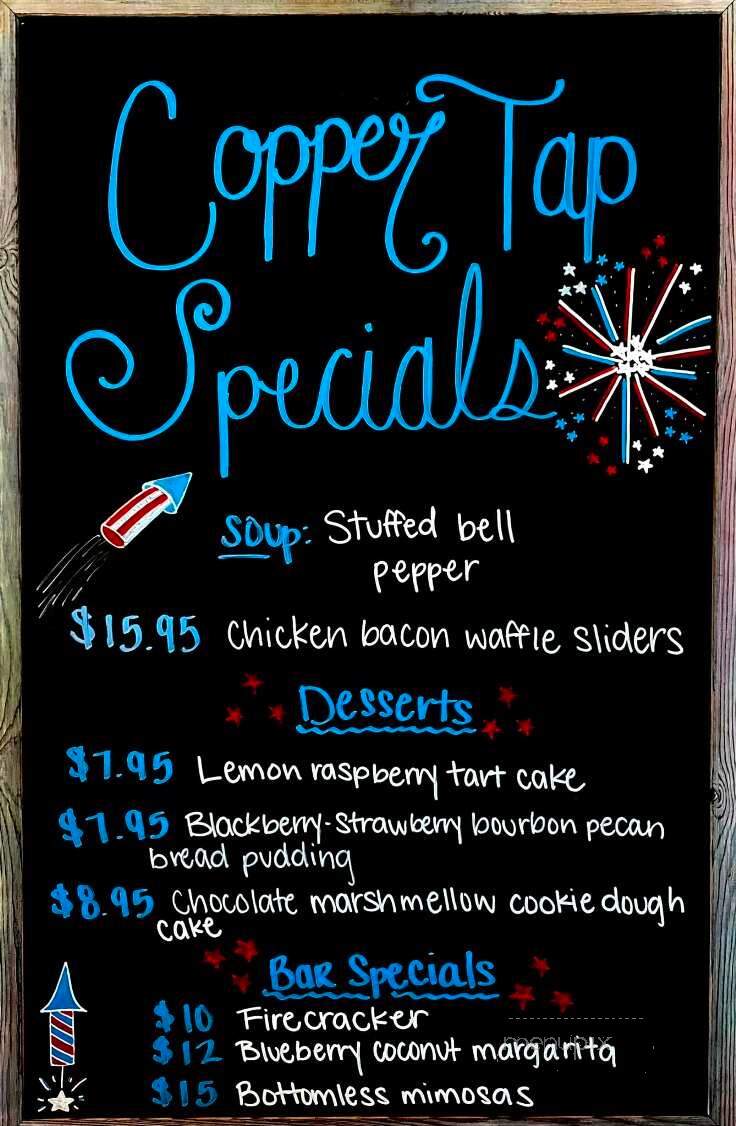 Copper Tap
Specials
Soup: Stuffed bell
pepper
$15.95 Chicken bacon waffle sliders
Desserts
$7.95 Lemon raspberry tart cake
$7.95 Blackberry-Strawberry bourbon pecan
bread pudding
$8.95 Chocolate marshmellow cookie dough
cake
Bar Specials
$10 Firecracker
menupix
$12 Blueberry coconut margarita
$15 Bottomless mimosas